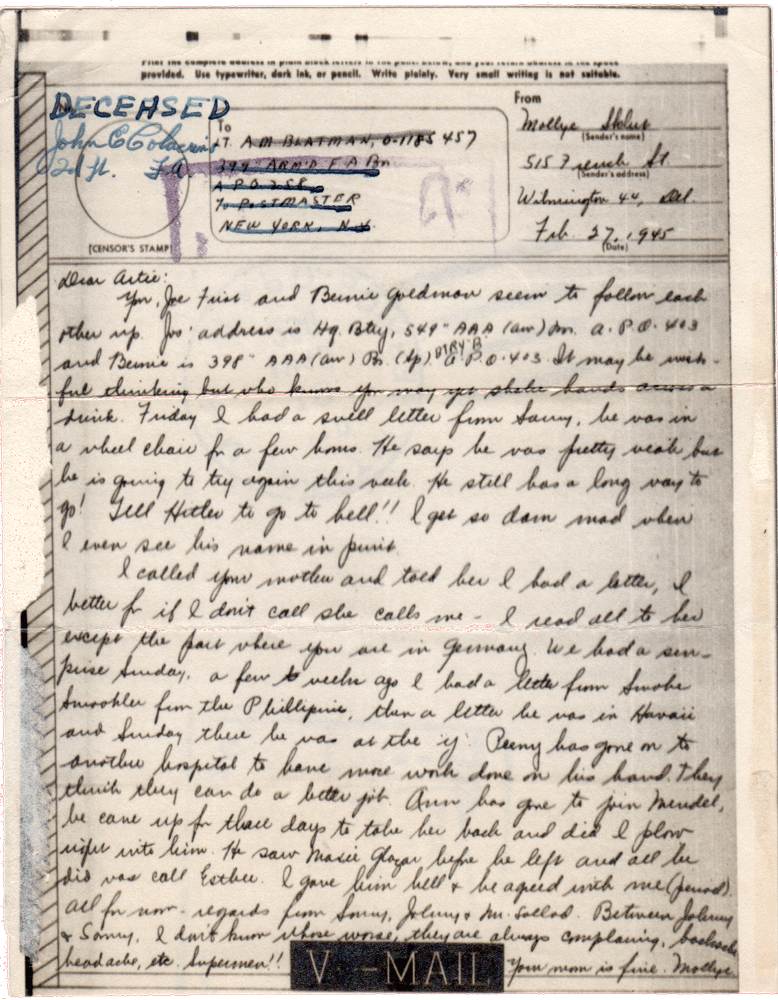 Print the complete address in plain block letters in the panel below, and your return address in the space
provided. Use typewriter, dark ink, or pencil. Write plainly. Very small writing is not suitable.
DECEASED
John E
2d Lt. F.A.
To
LT. A M BLATMAN, O-1185457
399" ARM'D F A Bn
A P O 258
% POSTMASTER
NEW YORK, N.Y.
[CENSOR'S STAMP]
From
Mollye Sklut
(Sender's name)
515 French St
(Sender's address)
Wilmington 44, Del.
Feb. 27, 1945
(Date)
Dear Artie:
You, Joe First and Bernie Goldman seem to follow each
other up. Joe' address is Hq. Btry, 549" AAA (aw) Bn. A.P.O. 403
and Bernie is 398" AAA (aw) Bn (Sp) BTRY B A.P.O. 403. It may be wish-
ful thinking but who knows you may yet shake hands across a
drink. Friday I had a swell letter from Sammy, he was in
a wheel chair for a few hours. He says he was pretty weak but
he is going to try again this week. He still has a long way to
go! Tell Hitler to go to hell!! I get so darn mad when
I even see his name in print.
I called your mother and told her I had a letter, I
better for if I don't call she calls me - I read all to her
except the part where you are in Germany. We had a sur-
prise Sunday. A few weeks ago I had a letter from
from the Phillipine, then a letter he was in Hawaii
and Sunday there he was at the "y". has gone on to
another hospital to have more work done on his hand. They
think they can do a better job. Ann has gone to join Mendel,
he came up for three days to take her back and did I plow
right into him. He saw before he left and all he
did was call Esther. I gave him hell & he agreed with me (period).
All for now - regards from Sonny, Johnny & Mr. Sollod. Between Johnny
& Sonny, I don't know whose worse, they are always complaining, backache
headache, etc. Supermen!! Your mom is fine. Mollye
V - MAIL